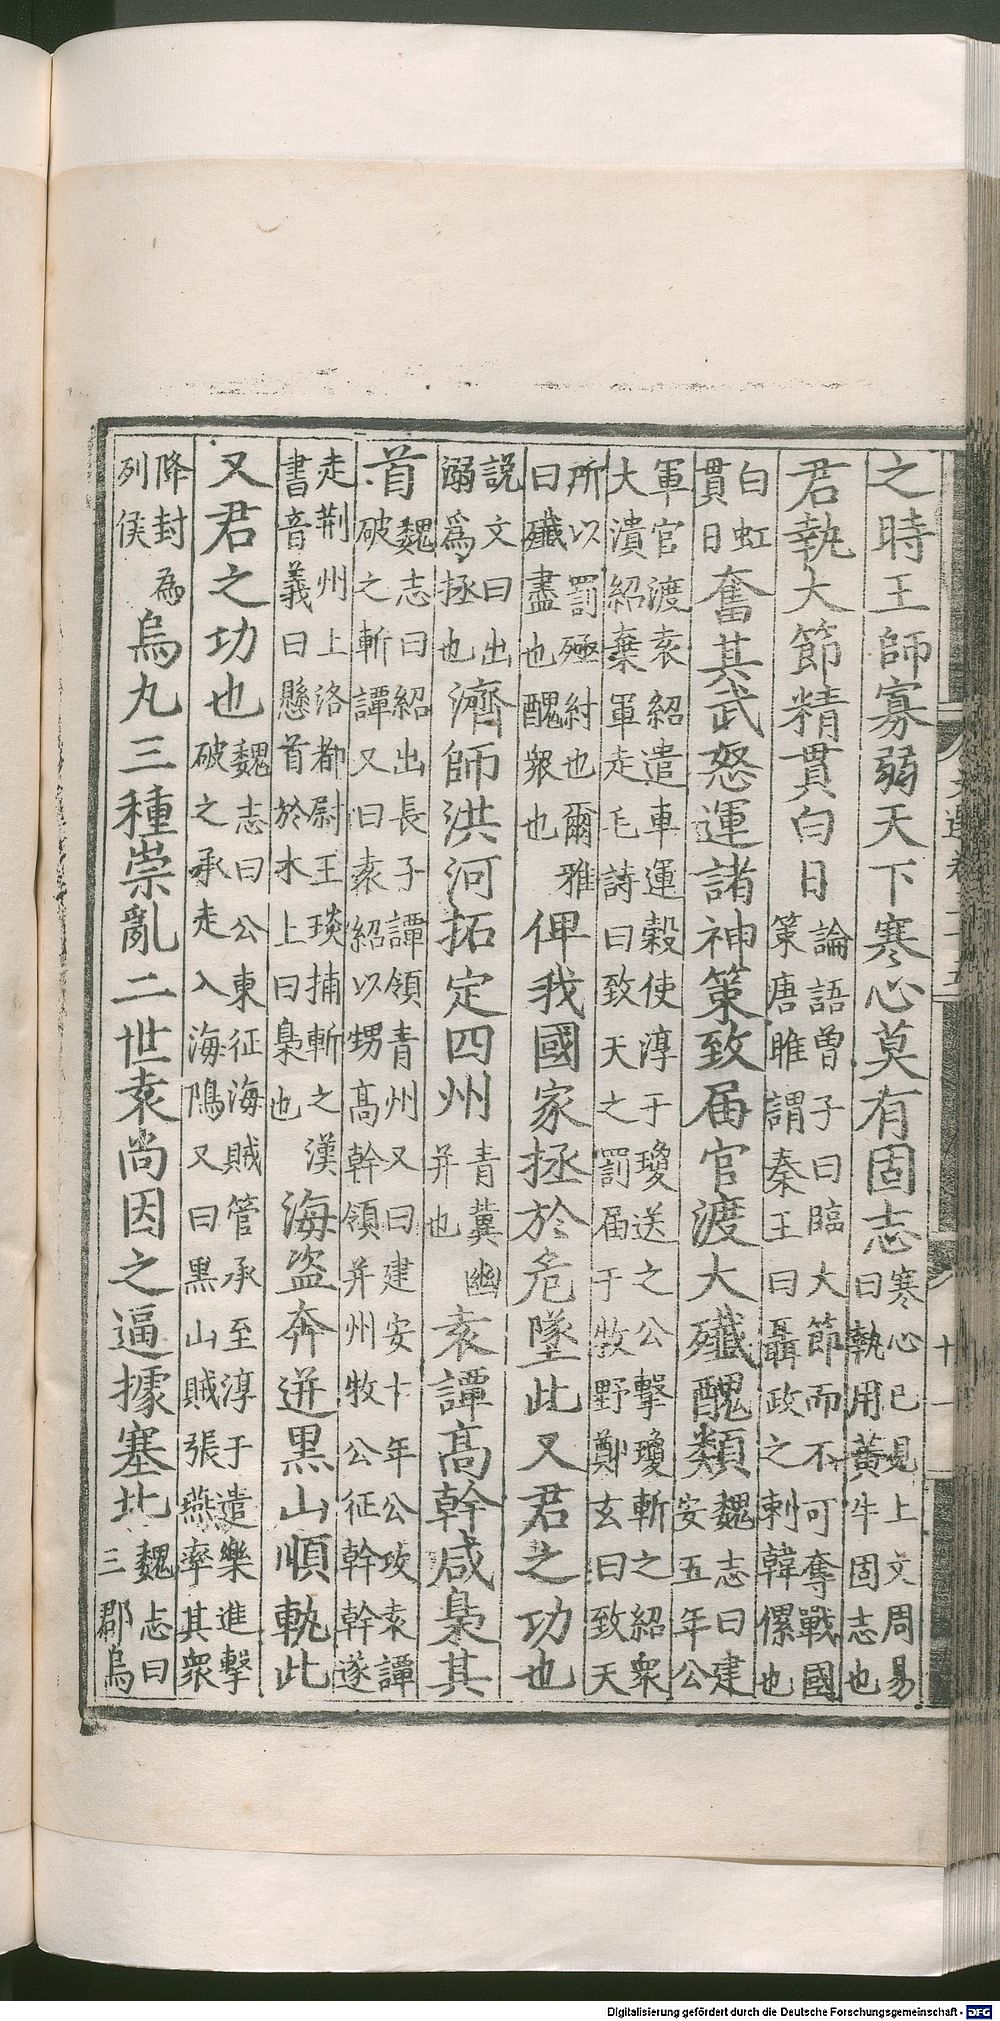 之時王師寡弱天下寒心莫有固志寒心已見上文周易曰執用黃牛固志也
君執大節精貫白日論語曾子曰臨大節而不可奪戰國策唐睢謂秦王曰聶政之刺韓傫也
白虹貫日奮其武怒運諸神策致届官渡大殲醜類魏志曰建安五年公
軍官渡袁紹遣車運穀使淳于瓊送之公擊瓊斬之紹衆大潰紹棄軍走毛詩曰致天之罰届于牧野鄭玄曰致天
所以罰殛紂也爾雅曰殲盡也醜衆也俾我國家拯於危墜此又君之功也
說文曰出溺爲拯也濟師洪河拓定四州青冀幽并也袁譚高幹咸梟其
首魏志曰紹出長子譚領青州又曰建安十年公攻袁譚破之斬譚又曰袁紹以甥高幹領并州牧公征幹幹遂
走荆州上洛都尉王琰捕斬之漢書音義曰懸首於木上曰梟也海盜奔迸黑山順軌此
又君之功也魏志曰公東征海賊管承至淳于遣樂進擊破之承走入海隝又曰黑山賊張燕率其衆
降封為列侯烏丸三種崇亂二世袁尚因之逼據塞北魏志曰三郡烏
文選卷三十五
十一
Digitalisierung gefördert durch die Deutsche Forschungsgemeinschaft - DFG